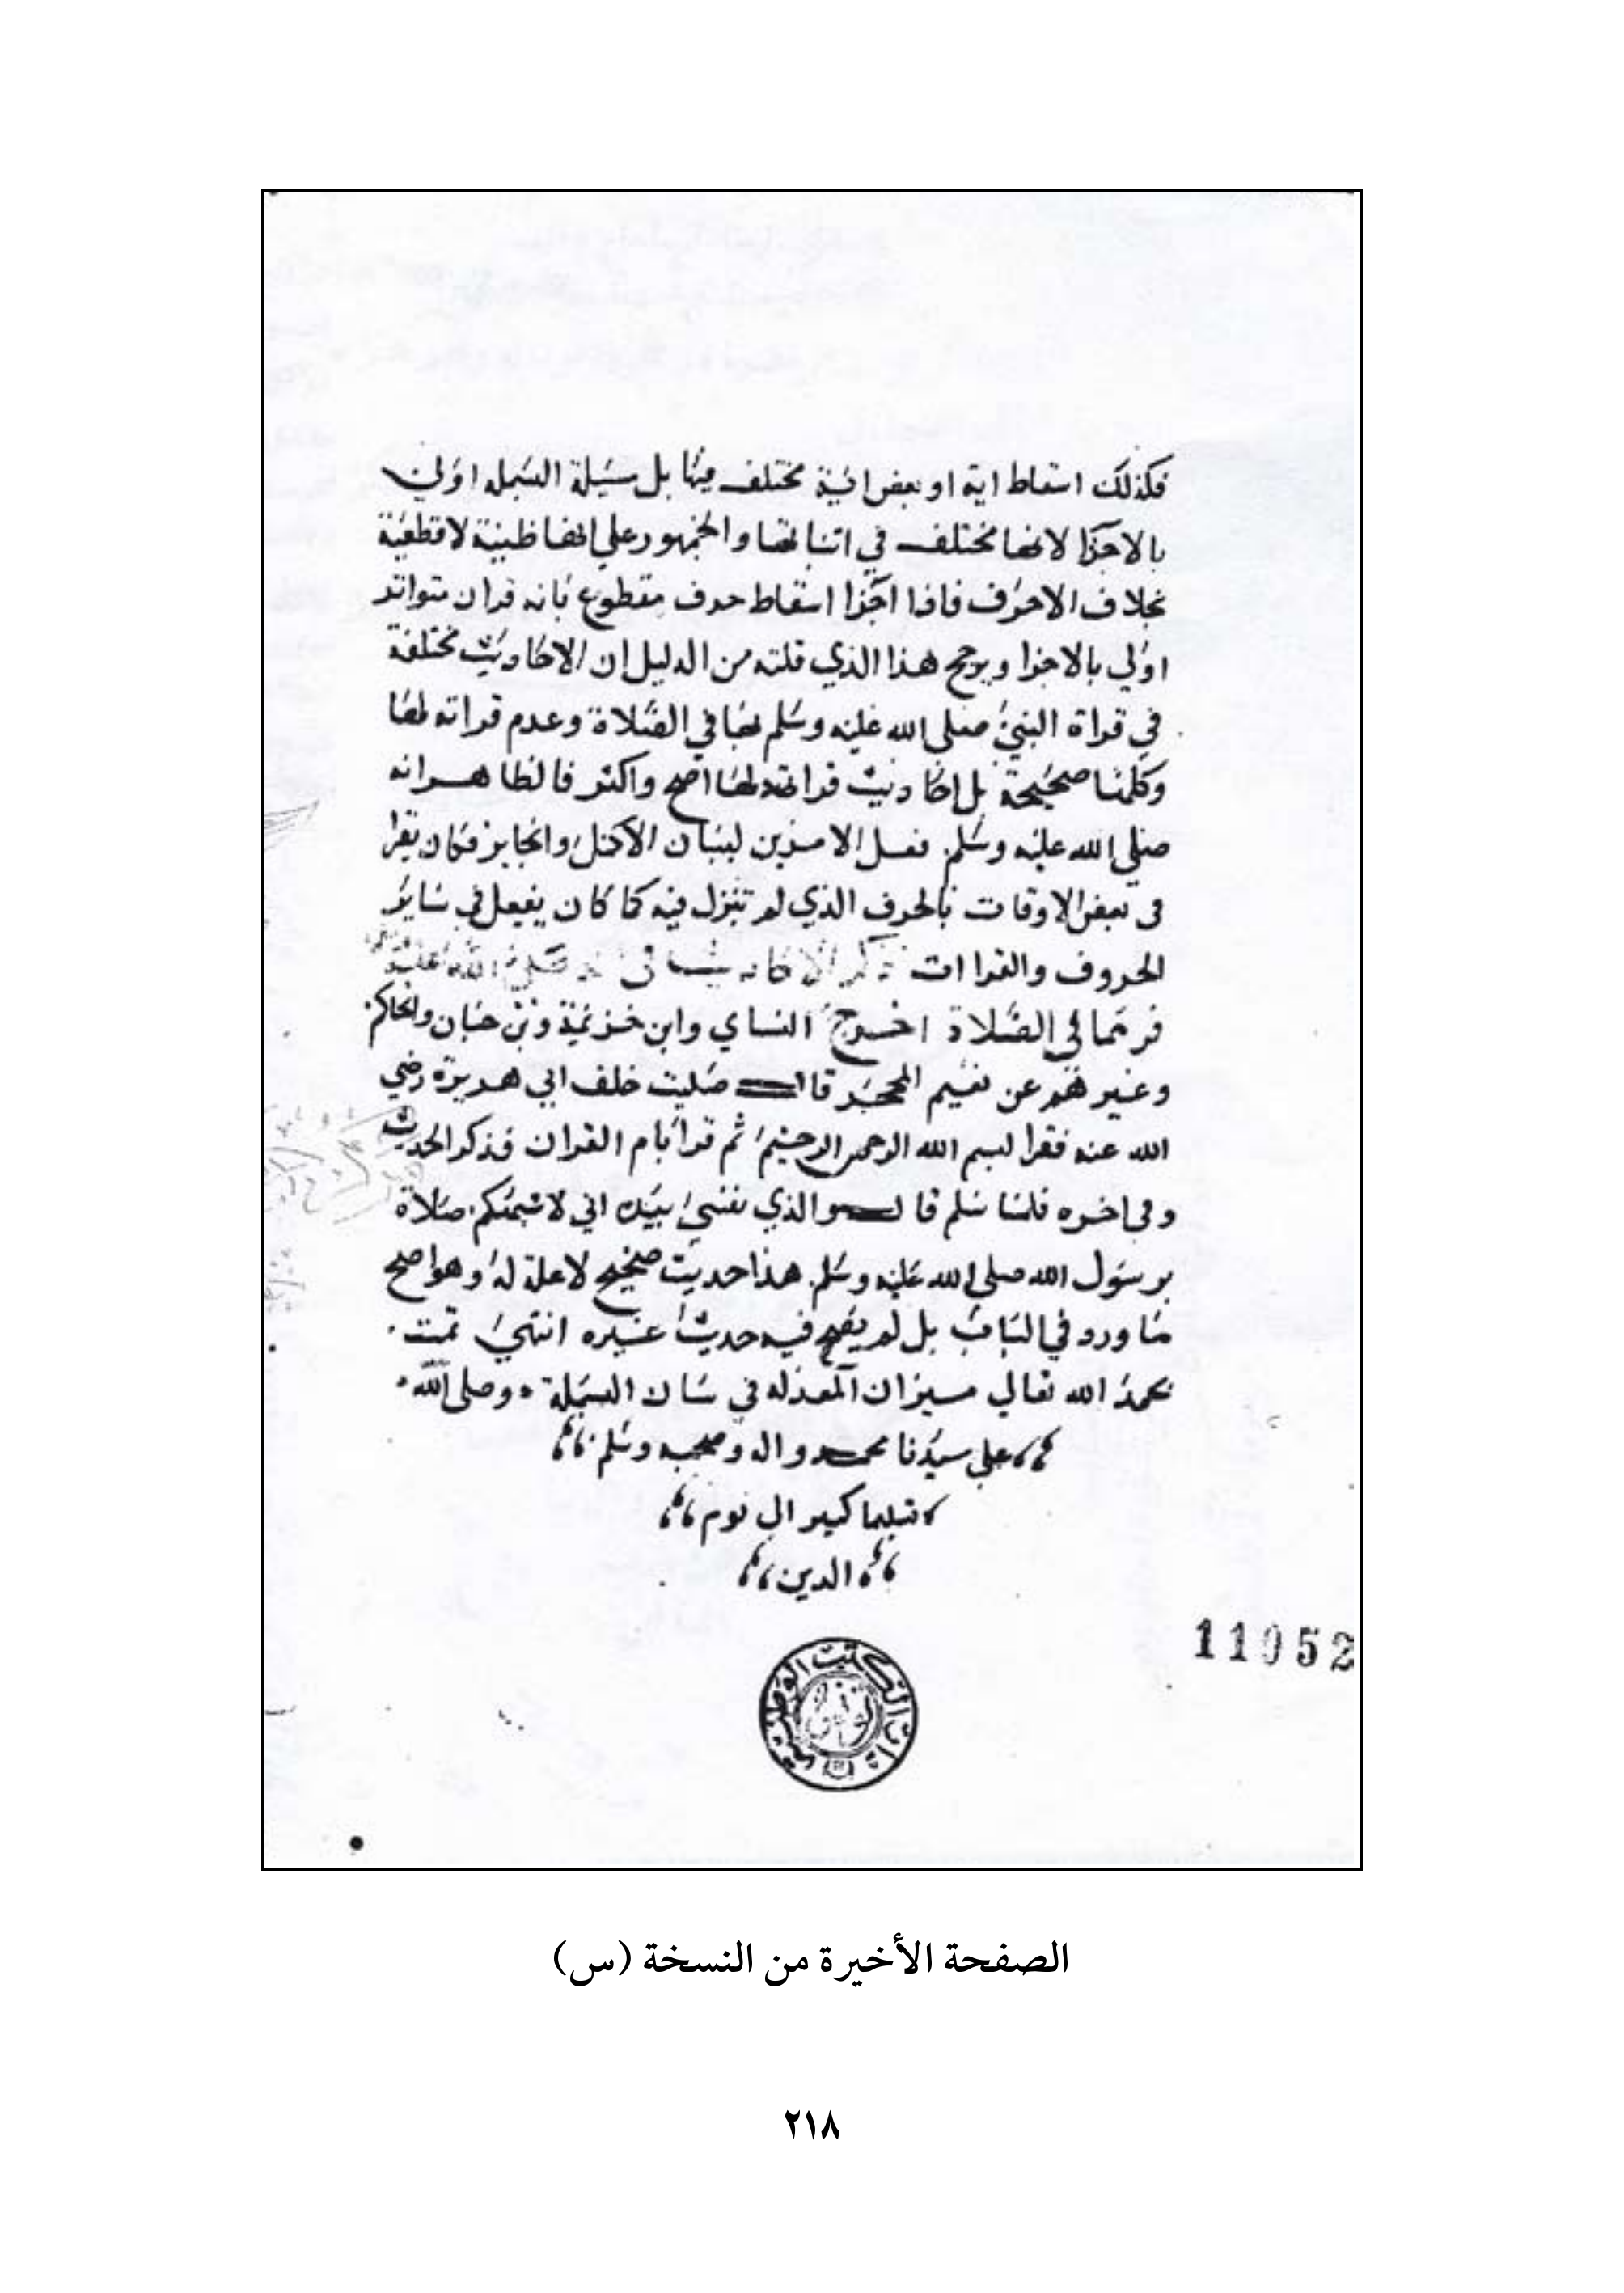 فكذلك اسقاط اية او بعض اية مختلف فيها بل مسيلة البسمله اولى
بالاجزا لانها مختلف في اثباتها والجمهور على انها ظنية لا قطعية
بخلاف الاحرف فاذا اجزا اسقاط حرف مقطوع بانه قران متواتر
اولي بالاجزا ويرجح هذا الذي قلته من الدليل ان الاحاديث مختلفة
في قراة النبي صلى الله عليه وسلم بها في الصلاة وعدم قراته لها
وكلها صحيحة بل احاديث قراته لها اصح واكثر فالظاهر انه
صلي الله عليه وسلم فعل الامرين لبيان الاكمل والجايز فكان يقرا
في بعض الاوقات بالحرف الذي لم تنزل فيه كما كان يفعل في ساير
الحروف والقراات ذكر الاحاديث صلى الله عليه
في الصلاة اخرج النساي وابن خزيمة وبن حبان والحاكم
وغيرهم عن نعيم المجمر قال صليت خلف ابي هريرة رضي
الله عنه فقرا بسم الله الرحمن الرحيم ثم قرا بام القران فذكر الحديث
وفي اخره فلما سلم قال والذي نفسي بيده اني لاشبهكم صلاة
برسول الله صلى الله عليه وسلم هذا حديث صحيح لا علة له وهو اصح
ما ورد في الباب بل لم يصح فيه حديث غيره انتهي تمت
بحمد الله تعالي ميزان المعدله في شان البسملة وصلى الله
على سيدنا محمد واله وصحبه وسلم
تسليما كثيرا الي يوم
الدين
11052
دار الكتب الوطنية
تونس
الصفحة الأخيرة من النسخة (س)
٢١٨